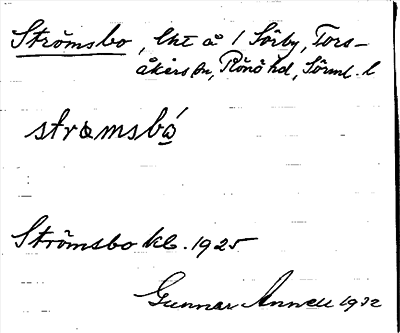 Strömsbo, lht å 1 Sörby, Tors-
åkers sn, Rönö hd, Sörml. l
strømsbó̲
Strömsbo kb. 1925
Gunnar Annell 1932